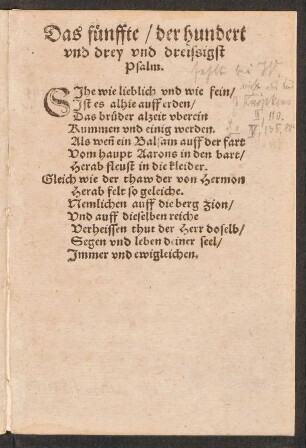 Das fünffte / der hundert
vnd drey vnd dreissigst
Psalm.
SIhe wie lieblich vnd wie fein/
Ist es alhie auff erden/
Das brüder alzeit vberein
Kummen vnd einig werden.
Als weñ ein Balsam auff der fart
Vom haupt Aarons in den bart/
Herab fleust in die kleider.
Gleich wie der thaw der von Hermon
Herab felt so geleiche.
Nemlichen auff die berg Zion/
Vnd auff dieselben reiche
Verheissen thut der Herr doselb/
Segen vnd leben deiner seel/
Immer vnd ewigleichen.
fehlt bei W.
II, 110.